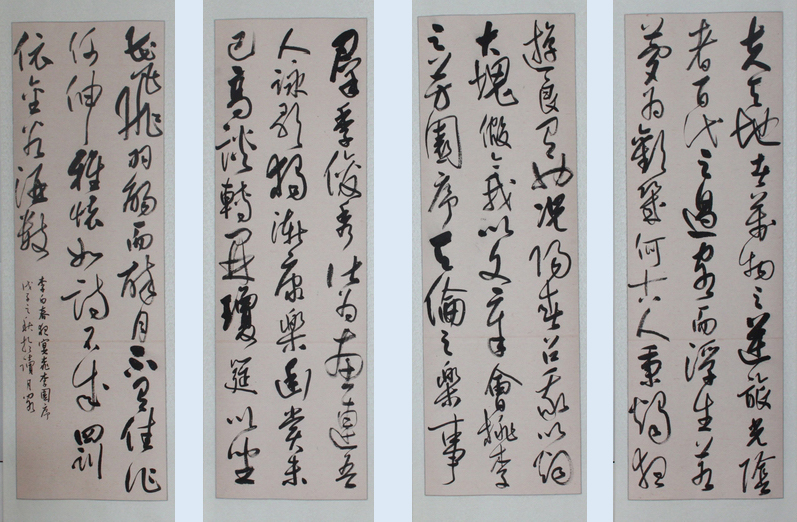 夫天地者萬物之逆旅光陰
者百代之過客而浮生若
夢為歡幾何古人秉燭夜
遊良有以況陽春召我以烟
大塊假我以文章會桃李
之芳園序天倫之樂事
群季俊秀皆為惠連吾
人詠歌獨慚康樂幽賞未
已高談轉開瓊筵以坐
花飛羽觴而醉月不有佳作
何伸雅懷如詩不成罰
依金谷酒數
李白春夜宴桃李園序
戊子之秋於月